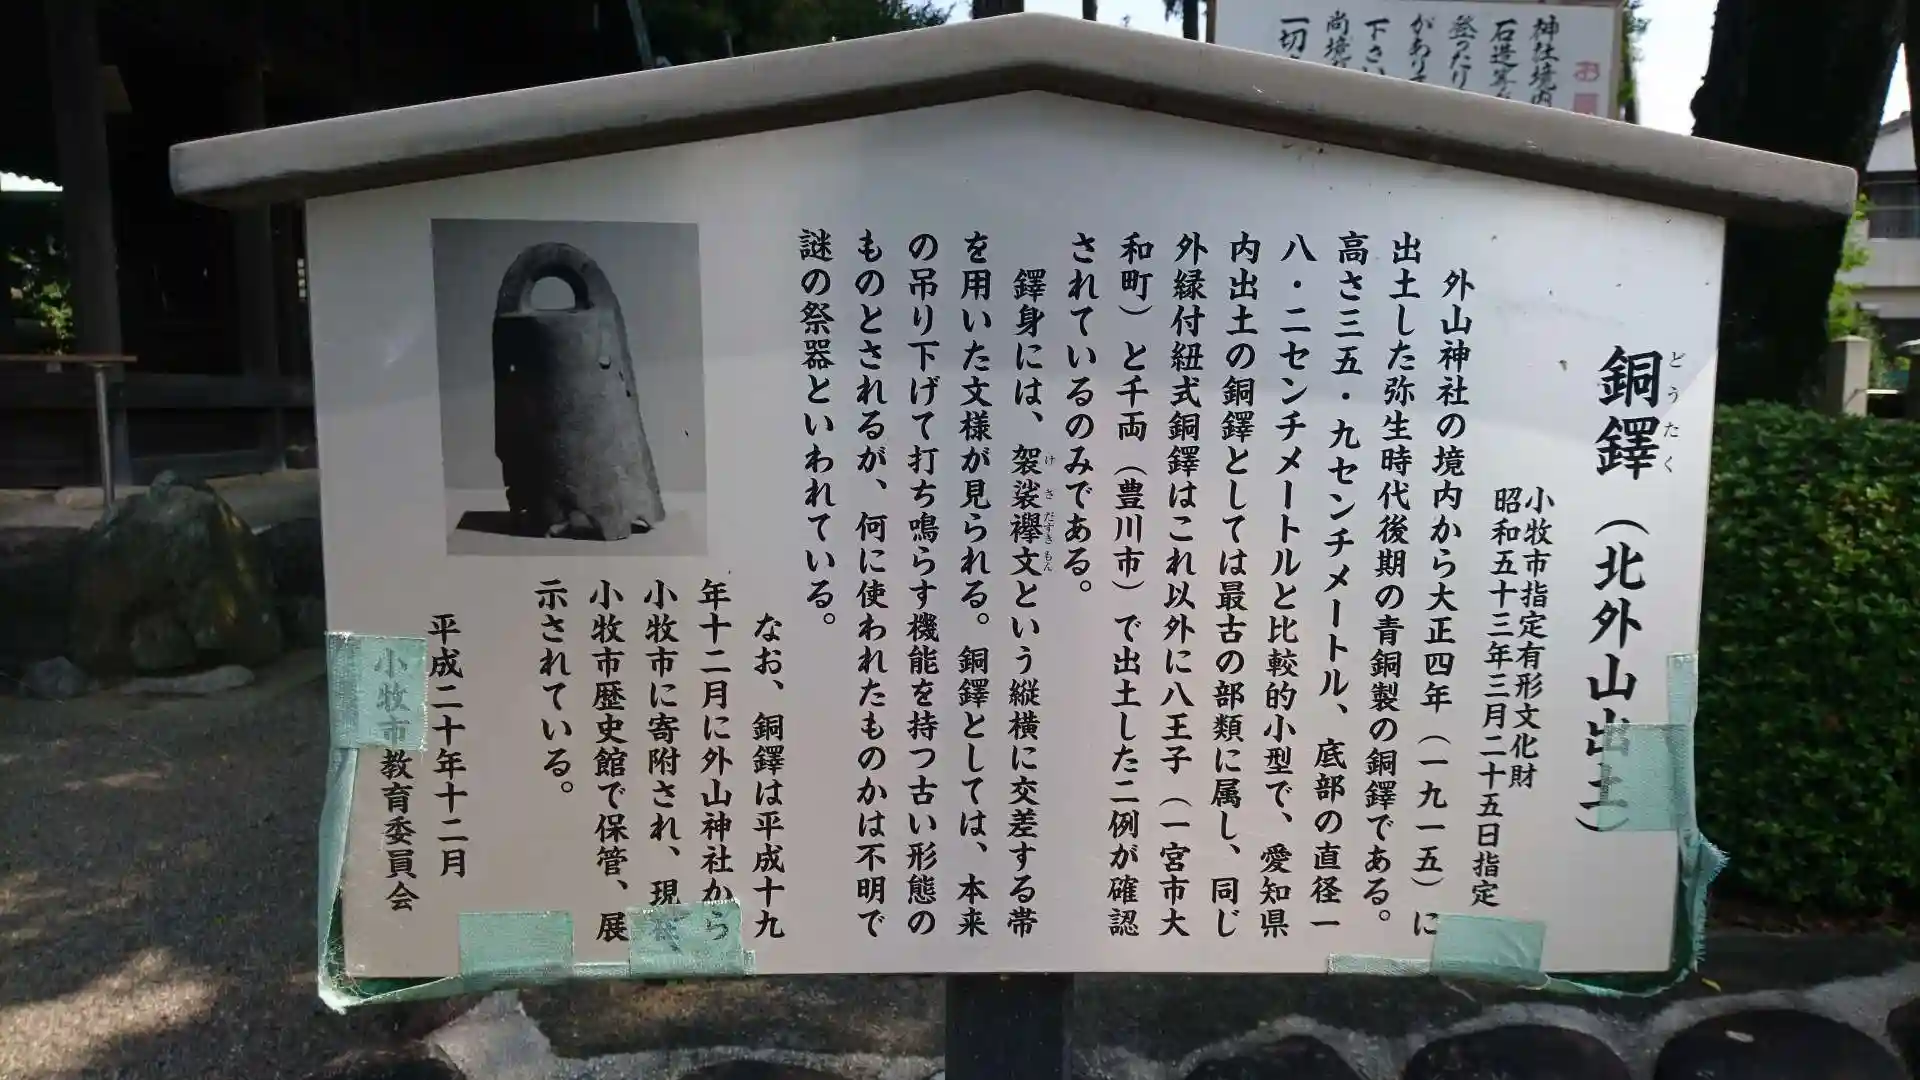 銅鐸（北外山出土）
どうたく
小牧市指定有形文化財
昭和五十三年三月二十五日指定
外山神社の境内から大正四年（一九一五）に
出土した弥生時代後期の青銅製の銅鐸である。
高さ三五・九センチメートル、底部の直径一
八・二センチメートルと比較的小型で、愛知県
内出土の銅鐸としては最古の部類に属し、同じ
外縁付紐式銅鐸はこれ以外に八王子（一宮市大
和町）と千両（豊川市）で出土した二例が確認
されているのみである。
鐸身には、袈裟襷文という縦横に交差する帯
けさだすきもん
を用いた文様が見られる。銅鐸としては、本来
の吊り下げて打ち鳴らす機能を持つ古い形態の
ものとされるが、何に使われたものかは不明で
謎の祭器といわれている。
なお、銅鐸は平成十九
年十二月に外山神社から
小牧市に寄附され、現在、
小牧市歴史館で保管、展
示されている。
平成二十年十二月
小牧市教育委員会
お
神社境内
石造
登ったり
があり
下さい
尚境
一切